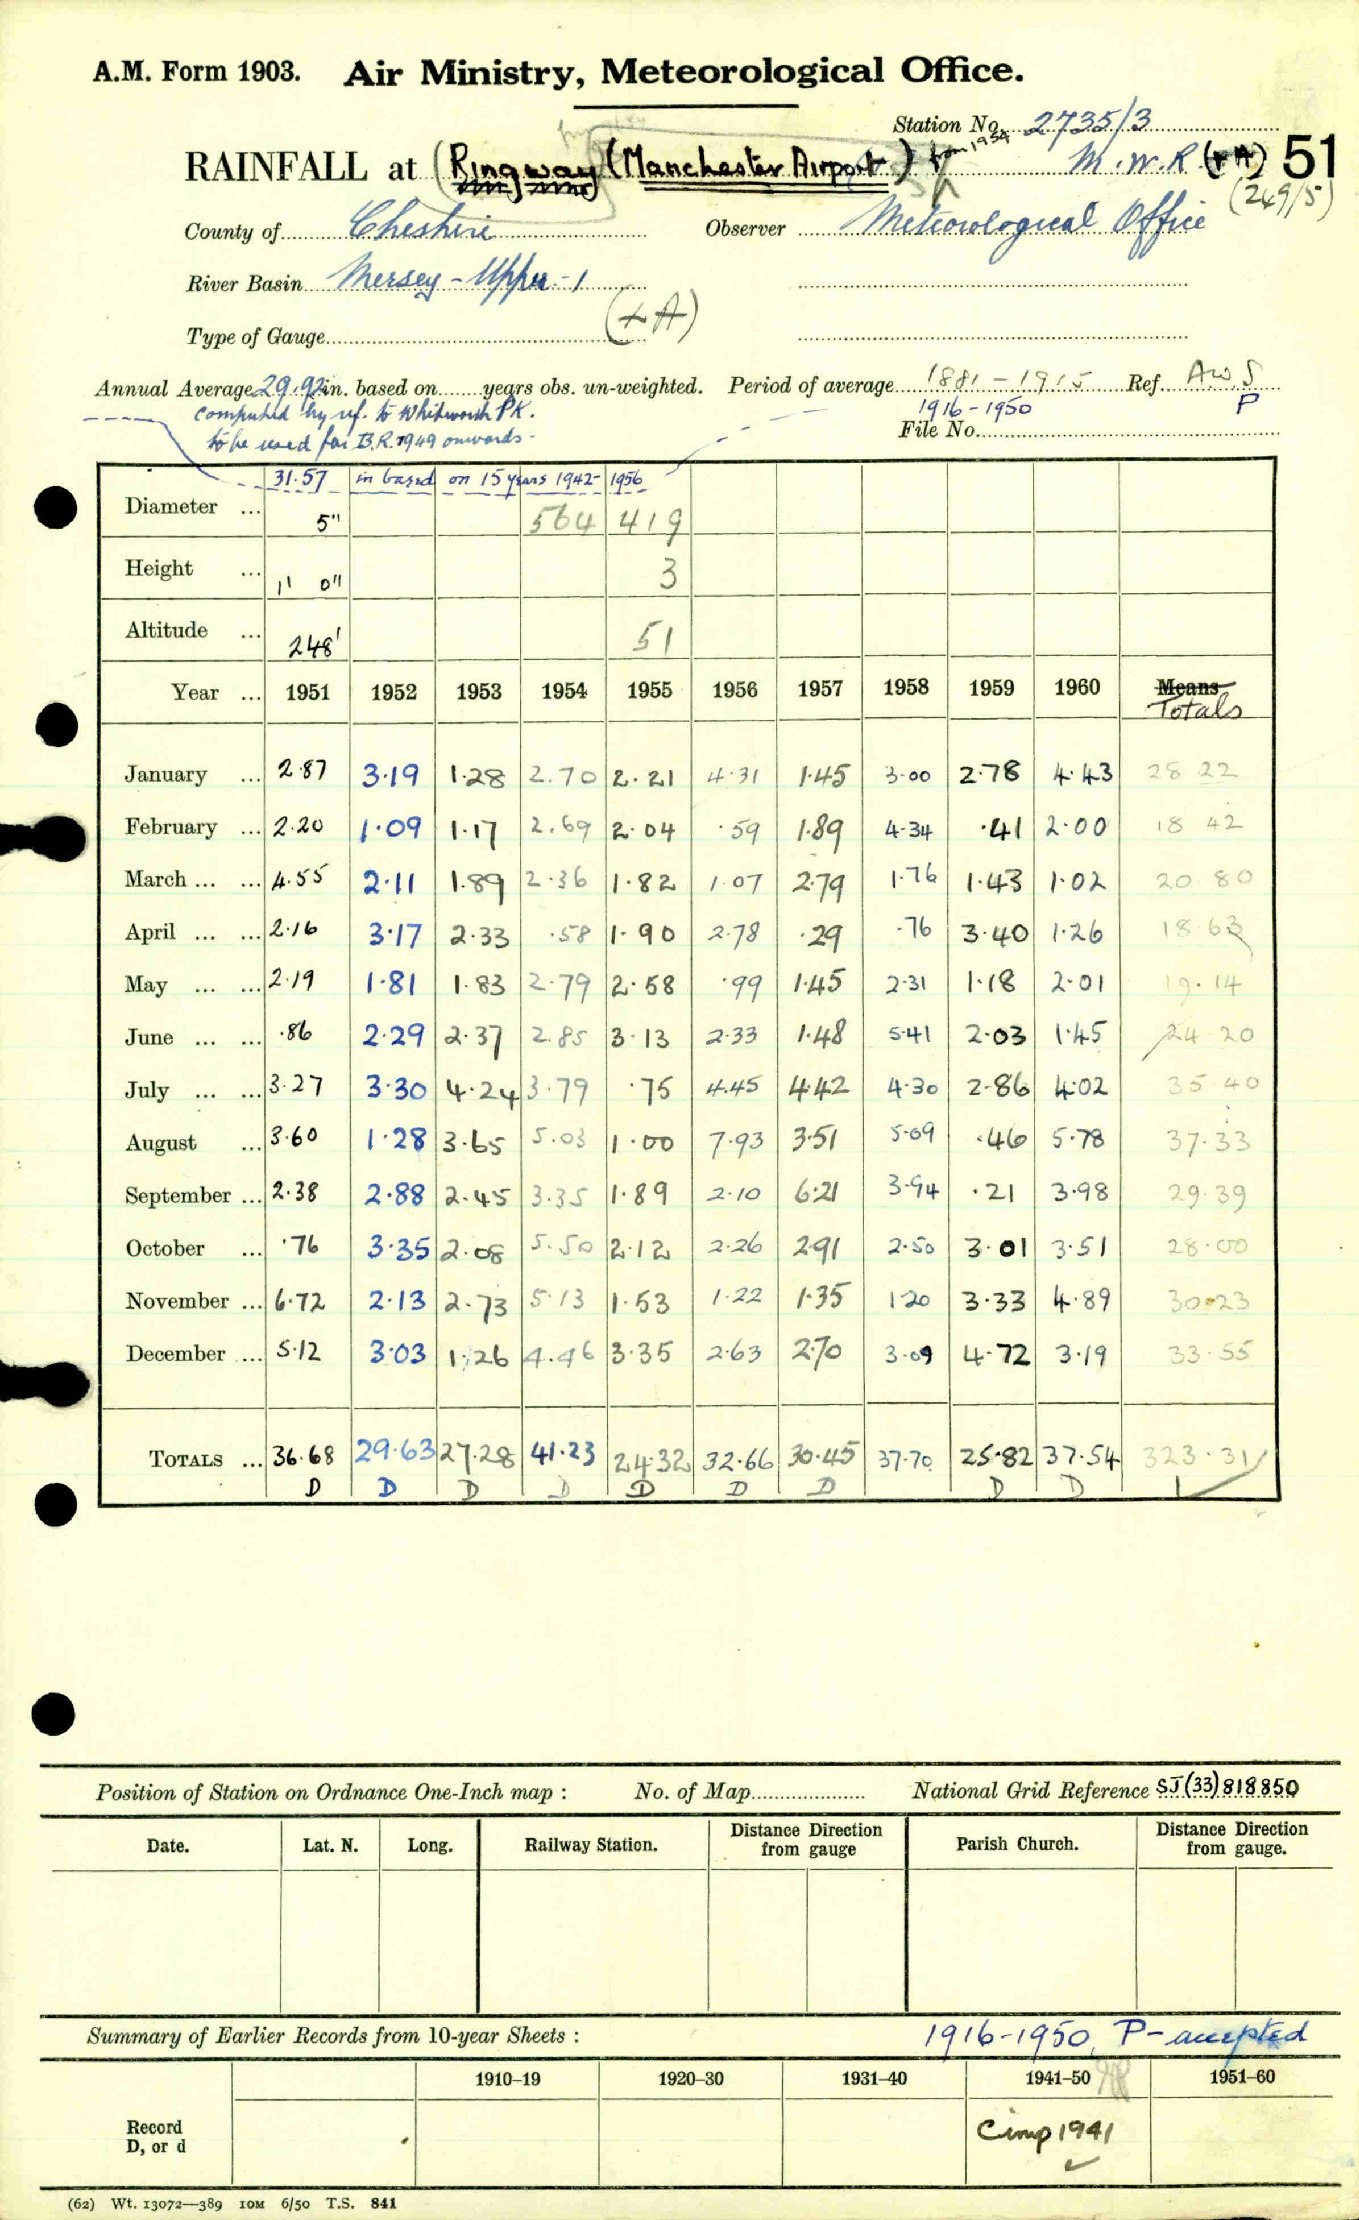 A.M. Form 1903. Air Ministry, Meteorological Office.
Station No. 2735/3
RAINFALL at (Ringway) (Manchester Airport) from 1954 M.W.R. (+A) 51
(249/5)
County of Cheshire Observer Meteorological Office
River Basin Mersey - Upper - 1
Type of Gauge (+A)
Annual Average 29.92 in. based on years obs. un-weighted. Period of average 1881 - 1915 Ref. A.W.S
computed by ref. to Whitworth PK. 1916 - 1950 P
to be used for B.R. 1949 onwards - File No.
31.57 in based on 15 years 1942 - 1956
Diameter ... 5" 564 419
Height ... 1' 0" 3
Altitude ... 248' 51
Year ... 1951 1952 1953 1954 1955 1956 1957 1958 1959 1960 Means
Totals
January ... 2.87 3.19 1.28 2.70 2.21 4.31 1.45 3.00 2.78 4.43 28 22
February ... 2.20 1.09 1.17 2.69 2.04 .59 1.89 4.34 .41 2.00 18 42
March ... ... 4.55 2.11 1.89 2.36 1.82 1.07 2.79 1.76 1.43 1.02 20.80
April ... ... 2.16 3.17 2.33 .58 1.90 2.78 .29 .76 3.40 1.26 18.63
May ... ... 2.19 1.81 1.83 2.79 2.58 .99 1.45 2.31 1.18 2.01 19.14
June ... ... .86 2.29 2.37 2.85 3.13 2.33 1.48 5.41 2.03 1.45 24 20
July ... ... 3.27 3.30 4.24 3.79 .75 4.45 4.42 4.30 2.86 4.02 35.40
August ... 3.60 1.28 3.65 5.03 1.00 7.93 3.51 5.09 .46 5.78 37.33
September ... 2.38 2.88 2.45 3.35 1.89 2.10 6.21 3.94 .21 3.98 29.39
October ... .76 3.35 2.08 5.50 2.12 2.26 2.91 2.50 3.01 3.51 28.00
November ... 6.72 2.13 2.73 5.13 1.53 1.22 1.35 1.20 3.33 4.89 30.23
December ... 5.12 3.03 1.26 4.46 3.35 2.63 2.70 3.09 4.72 3.19 33.55
TOTALS ... 36.68 29.63 27.28 41.23 24.32 32.66 30.45 37.70 25.82 37.54 323.31
D D D D D D D D D
Position of Station on Ordnance One-Inch map : No. of Map National Grid Reference SJ (33) 818850
Date. Lat. N. Long. Railway Station. Distance from Direction gauge Parish Church. Distance from Direction gauge.
Summary of Earlier Records from 10-year Sheets : 1916-1950, P - accepted
1910-19 1920-30 1931-40 1941-50 1951-60
Record
D, or d
Comp 1941
(62) Wt. 13072—389 10M 6/50 T.S. 841